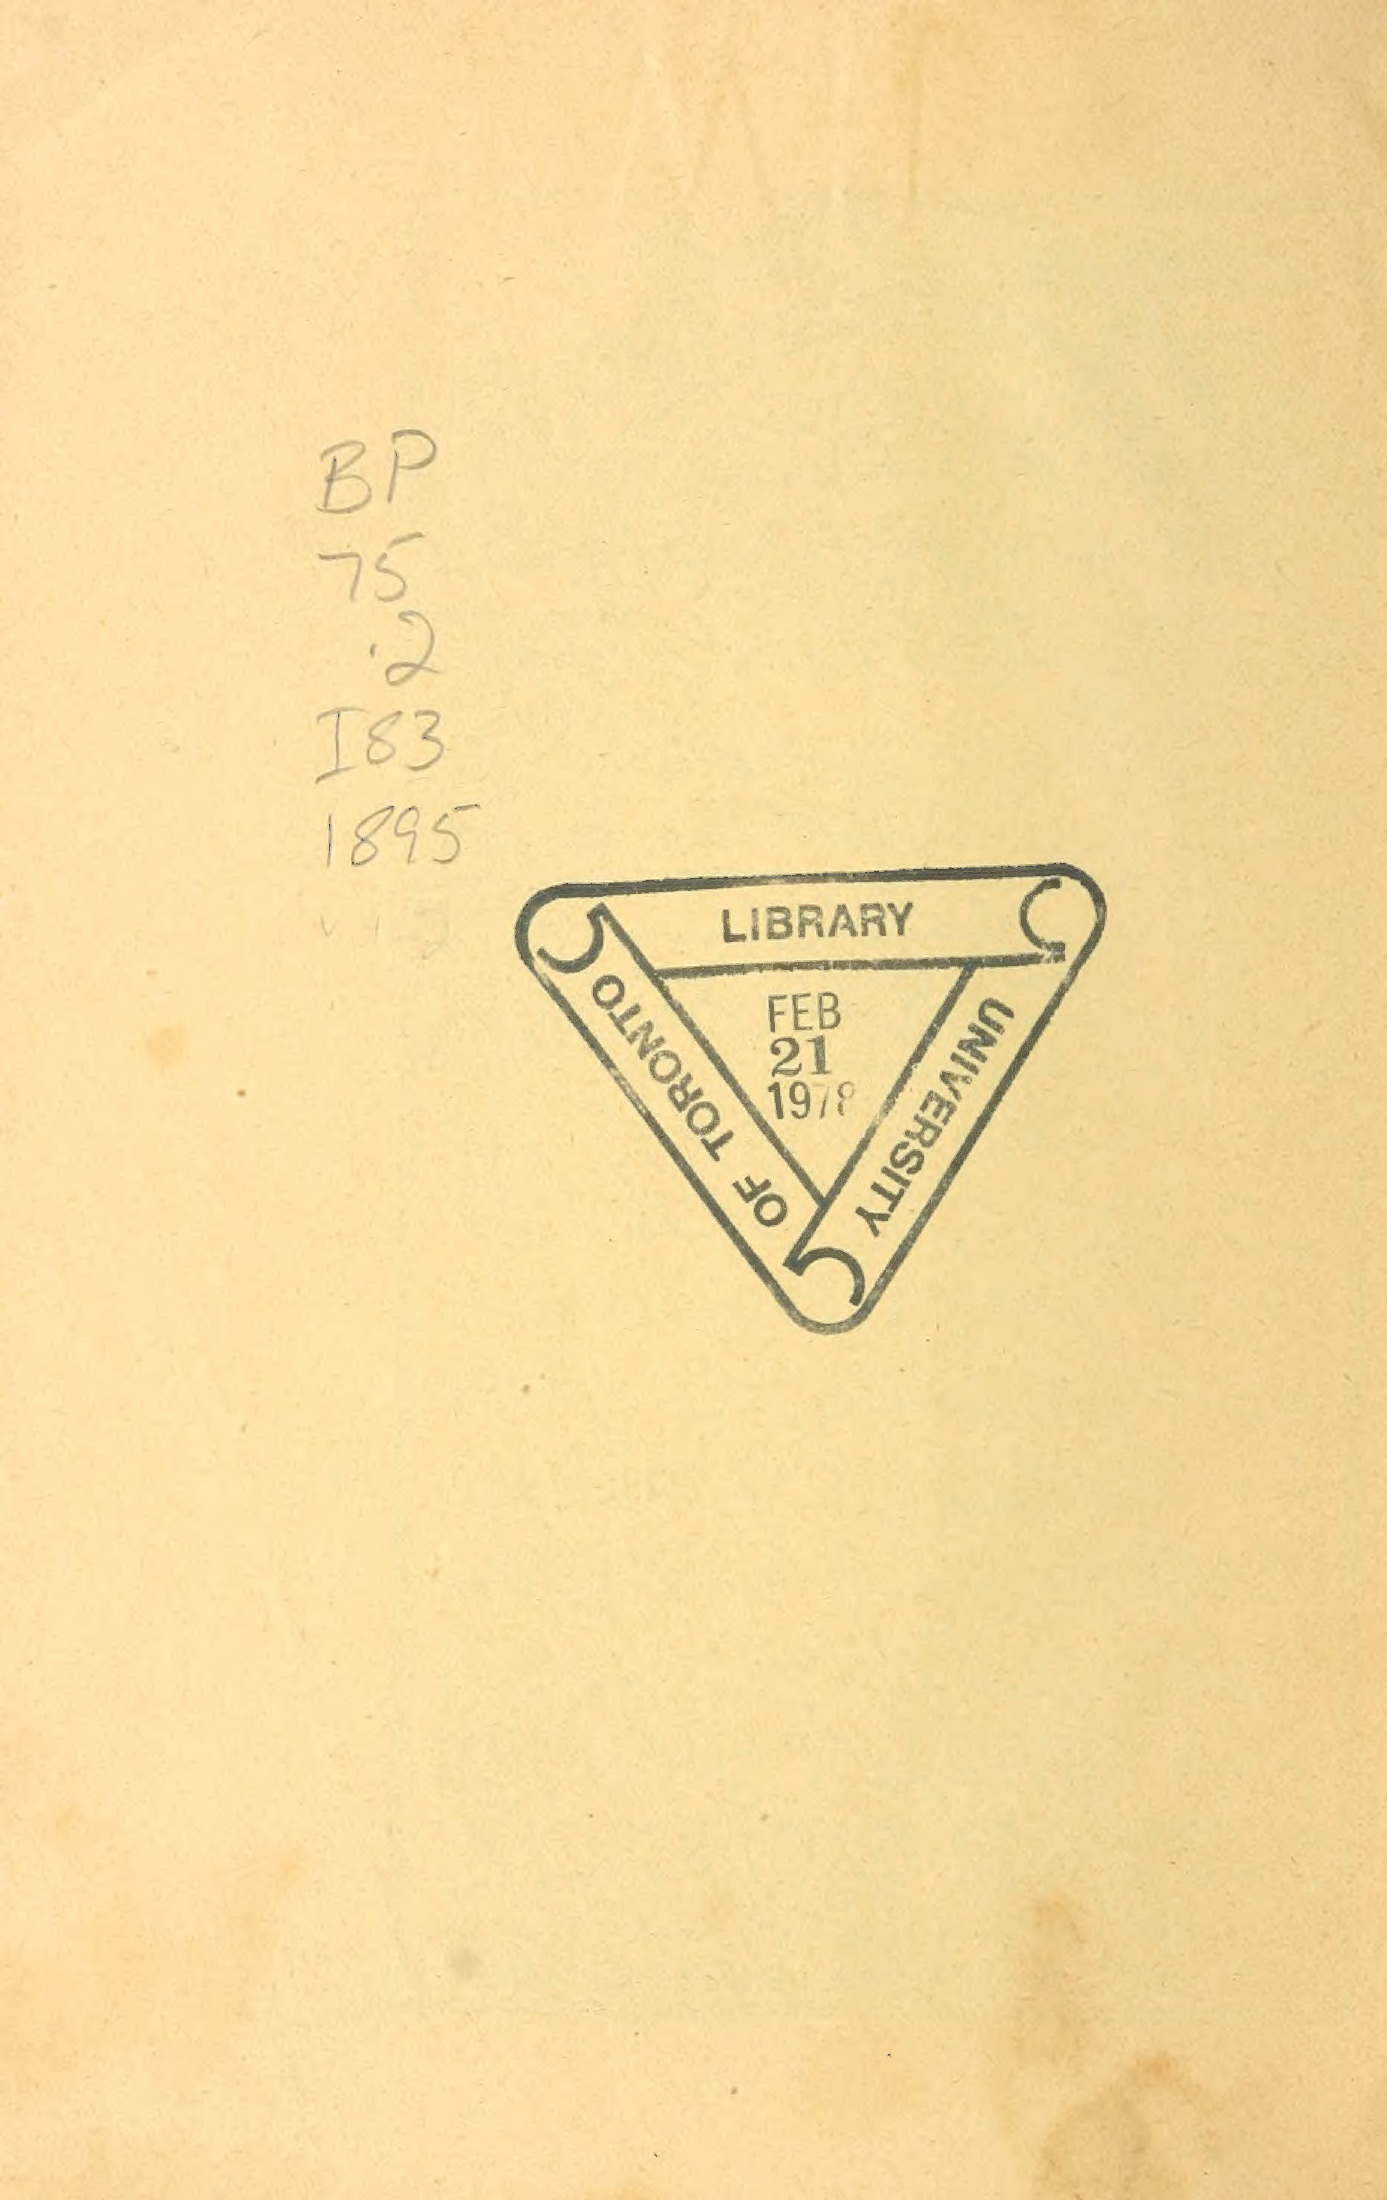 BP
75
.2
I83
1895
LIBRARY
FEB
21
1978
UNIVERSITY
OF TORONTO